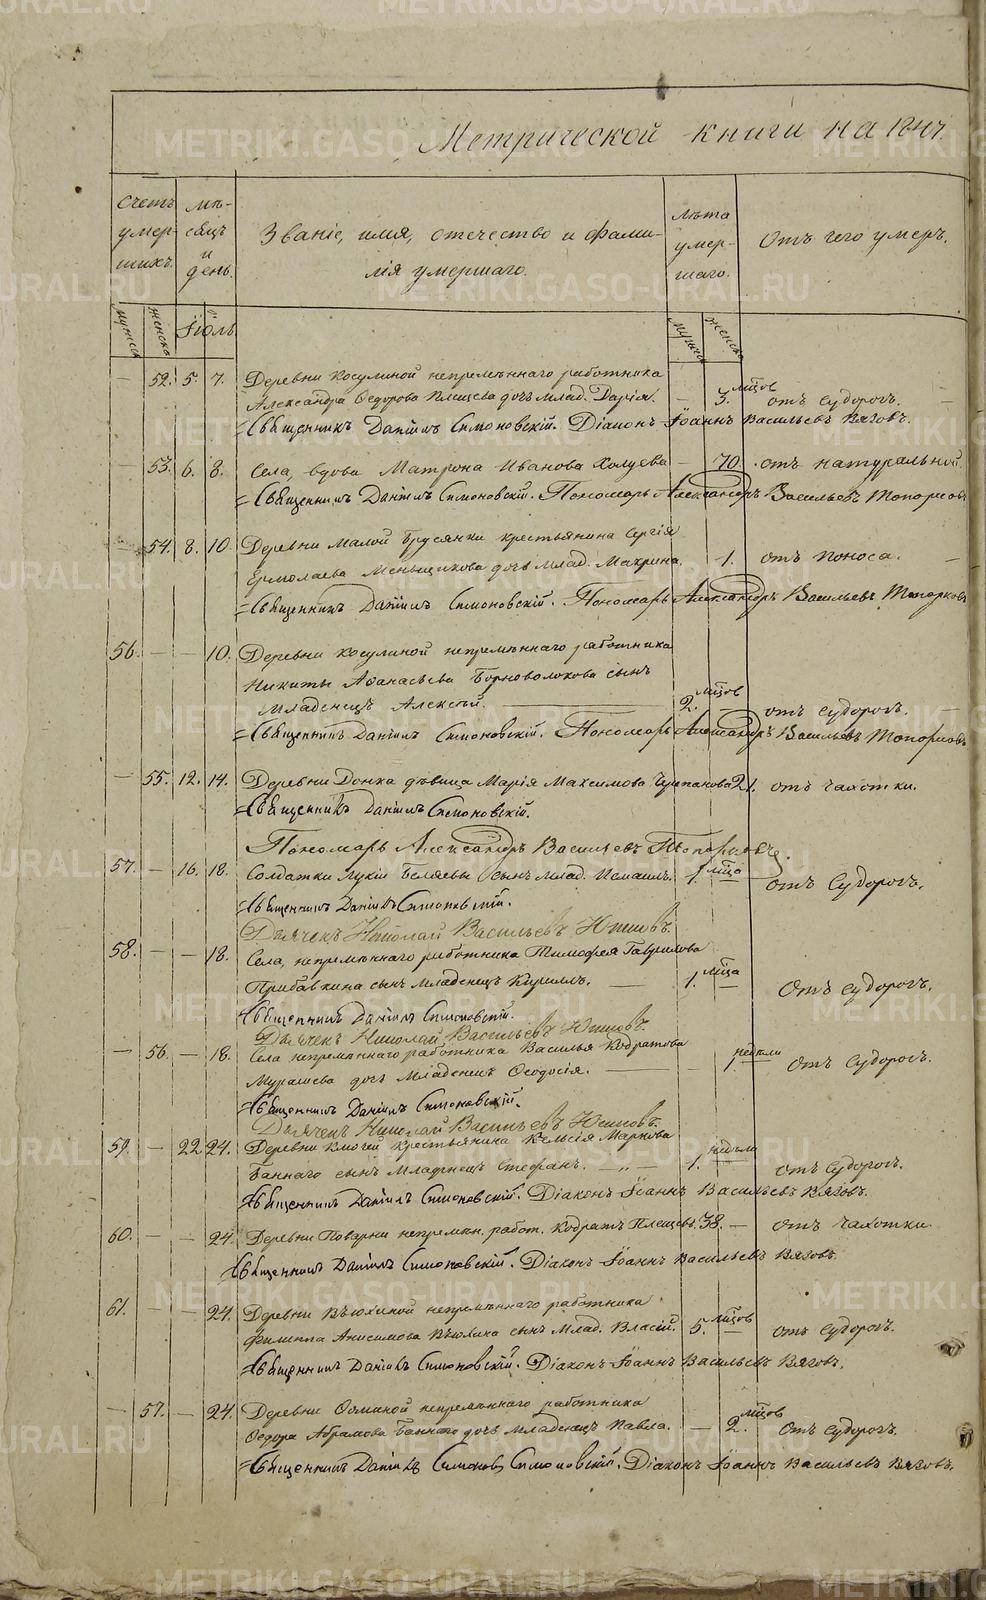 METRIKI.GASO-URAL.RU
Метрической книги на 18
Счетъ умер- шихъ.
мѣ- сяцъ и день.
Званіе, имя, отечество и фами- лія умершаго.
лѣта умер- шаго.
Отъ чего умеръ.
мужеск женска Іюль мужеск женска
— 52. 5. 7. Деревни Косулиной непремѣннаго работника
Александра Ѳедорова Плещева дочь млад. Дарія. — 3. мѣсцов отъ судорогъ. —
Священникъ Даніилъ Симоновскій. Діаконъ Іоаннъ Васильевъ Вязовъ.
— 53. 6. 8. Села, вдова Матрона Иванова Холуева — 70. отъ натуральной.
Священникъ Даніилъ Симоновскій. Пономарь Александръ Васильевъ Топорковъ
— 54. 8. 10. Деревни Малой Брусянки крестьянина Сергія
Ермолаева Меньщикова дочь млад. Макрина. — 1. отъ поноса. —
Священникъ Даніилъ Симоновскій. Пономарь Александръ Васильевъ Топорковъ
56. — — 10. Деревни Косулиной непремѣннаго работника
Никиты Аѳанасьева Борноволокова сынъ
Младенецъ Алексѣй. — 2. мѣсцов — отъ судорогъ. —
Священникъ Даніилъ Симоновскій. Пономарь Александръ Васильевъ Топорковъ
— 55. 12. 14. Деревни девица Марія Максимова 21. отъ чахотки.
Священникъ Даніилъ Симоновскій.
Пономарь Александръ Васильевъ Топорковъ.
57. — 16. 18. Солдатки Лукіи Беляевы сынъ млад. Исмаилъ. 1. мѣсца — отъ судорогъ.
Священникъ Даніилъ Симоновскій.
Дьячекъ Николай Васильевъ
58. — — 18. Села, непремѣннаго работника Тимофея Гаврилова
Прибавкина сынъ младенецъ Кириллъ. — 1. мѣсца — Отъ судорогъ.
Священникъ Даніилъ Симоновскій.
Дьячекъ Николай Васильевъ
— 56. — 18. Села непремѣннаго работника Василья Кодратова
Мурашева дочь младенецъ Ѳеодосія. — — 1. недѣли Отъ судорогъ.
Священникъ Даніилъ Симоновскій.
Дьячекъ Николай Васильевъ
59. — 22. 24. Деревни крестьянина Маркова
Баннаго сынъ младенецъ Стефанъ. — „ — 1. недѣли — отъ судорогъ.
Священникъ Даніилъ Симоновскій. Діаконъ Іоаннъ Васильевъ Вязовъ.
60. — — 24. Деревни Поварни непремѣн. работ. Кодратъ Плещевъ. 38. — отъ чахотки
Священникъ Даніилъ Симоновскій. Діаконъ Іоаннъ Васильевъ Вязовъ.
61. — — 24. Деревни Вьюхиной непремѣннаго работника
Филиппа Анисимова Вьюхина сынъ млад. Власій. 5. мѣсцов — отъ судорогъ.
Священникъ Даніилъ Симоновскій. Діаконъ Іоаннъ Васильевъ Вязовъ.
— 57. — 24. Деревни непремѣннаго работника
Ѳедора Абрамова Баннаго дочь младенецъ Павла. — 2. мѣсцов отъ судорогъ.
Священникъ Даніилъ Симоновскій. Діаконъ Іоаннъ Васильевъ Вязовъ.